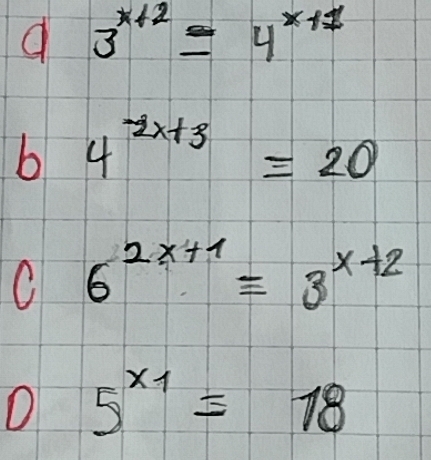 a 3^{x+2} = 4^{x+1}
b 4^{-2x+3} = 20
C 6^{2x+1} = 3^{x+2}
D 5^{x1} = 18